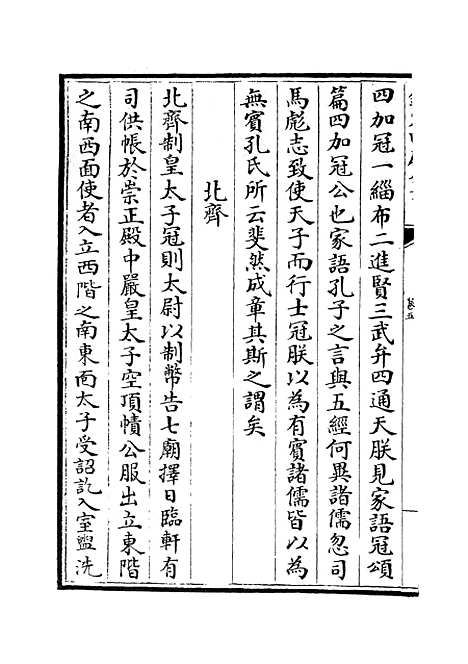 四加冠一緇布二進賢三武弁四通天朕見家語冠頌
篇四加冠公也家語孔子之言與五經何異諸儒忽司
馬彪志致使天子而行士冠朕以為有賓諸儒皆以為
無賓孔氏所云斐然成章其斯之謂矣
北齊
北齊制皇太子冠則太尉以制幣告七廟擇日臨軒有
司供帳於崇正殿中嚴皇太子空頂幘公服出立東階
之南西面使者入立西階之南東面太子受詔訖入室盥洗